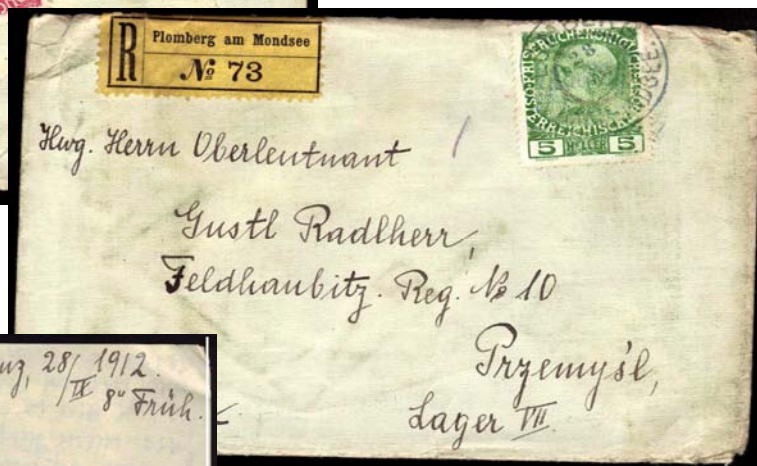 R Plomberg am Mondsee
№ 73
5 HELLER 5
Hwg. Herrn Oberleutnant
Gustl Radlherr,
Feldhaubitz. Reg. № 10
Przemyśl,
Lager VII.
28/IX 1912.
8" Früh.